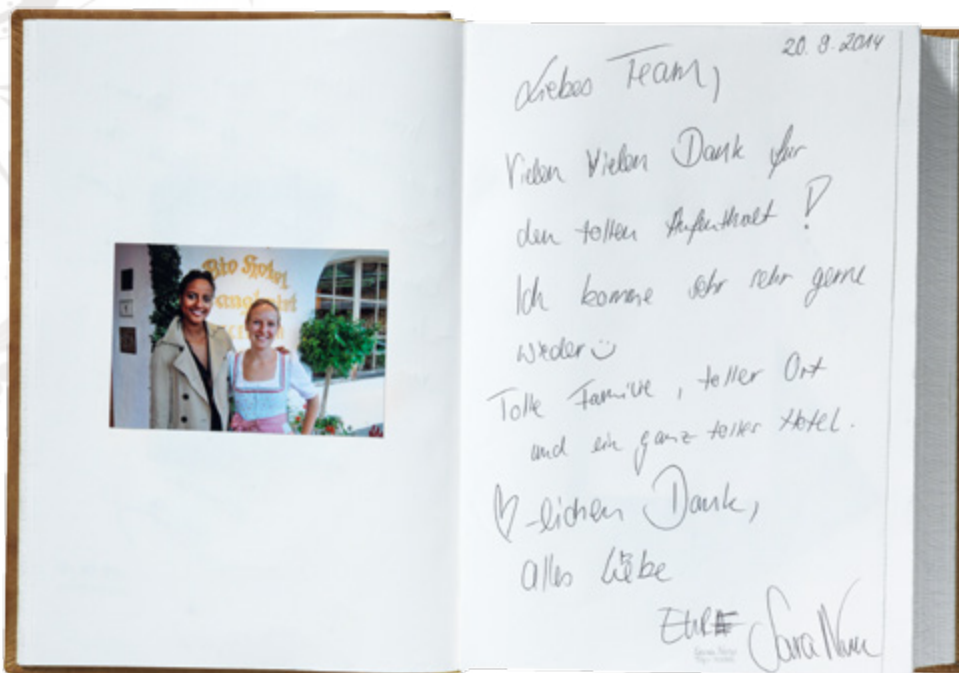 Bio Hotel
20.9.2014
Liebes Team,
Vielen Vielen Dank für
den tollen Aufenthalt!
Ich komme sehr sehr gerne
wieder
Tolle Familie, toller Ort
und ein ganz tolles Hotel.
♡-lichen Dank,
alles Liebe
EURE Sara Nuru